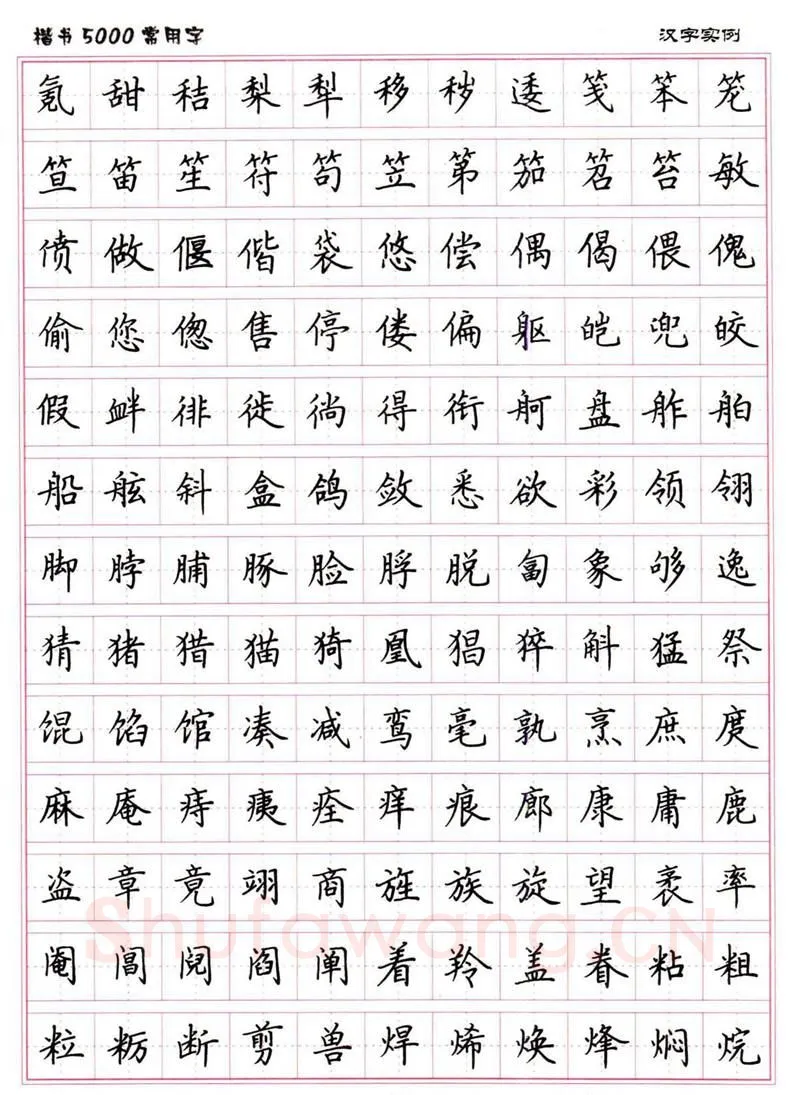 楷书5000常用字 汉字实例
氪 甜 秸 梨 犁 移 秽 逶 笺 笨 笼
笪 笛 笙 符 笱 笠 第 笳 笤 笞 敏
偾 做 偃 偕 袋 悠 偿 偶 偈 偎 傀
偷 您 偬 售 停 偻 偏 躯 皑 兜 皎
假 衅 徘 徙 徜 得 衔 舸 盘 舴 舶
船 舷 斜 盒 鸽 敛 悉 欲 彩 领 翎
脚 脖 脯 豚 脸 脬 脱 匐 象 够 逸
猜 猪 猎 猫 猗 凰 猖 猝 斛 猛 祭
馄 馅 馆 凑 减 鸾 毫 孰 烹 庶 度
麻 庵 痔 痍 痊 痒 痕 廊 康 庸 鹿
盗 章 竟 翊 商 旌 族 旋 望 袤 率
阉 阊 阋 阎 阐 着 羚 盖 眷 粘 粗
粒 粝 断 剪 兽 焊 烯 焕 烽 焖 烷
Shufawang.CN